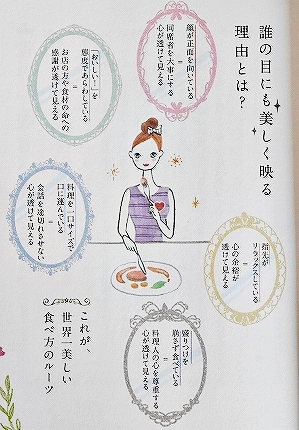 誰の目にも美しく映る
理由とは?
顔が正面を向いている
=
同席者を大事にする
心が透けて見える
「おいしい!」を
態度であらわしている
=
お店の方や食材の命への
感謝が透けて見える
指先が
リラックスしている
=
心の余裕が
透けて見える
料理を一口サイズで
口に運んでいる
=
会話を途切れさせない
心が透けて見える
盛りつけを
崩さず食べている
=
料理人の心を尊重する
心が透けて見える
これが、
世界一美しい
食べ方のルーツ